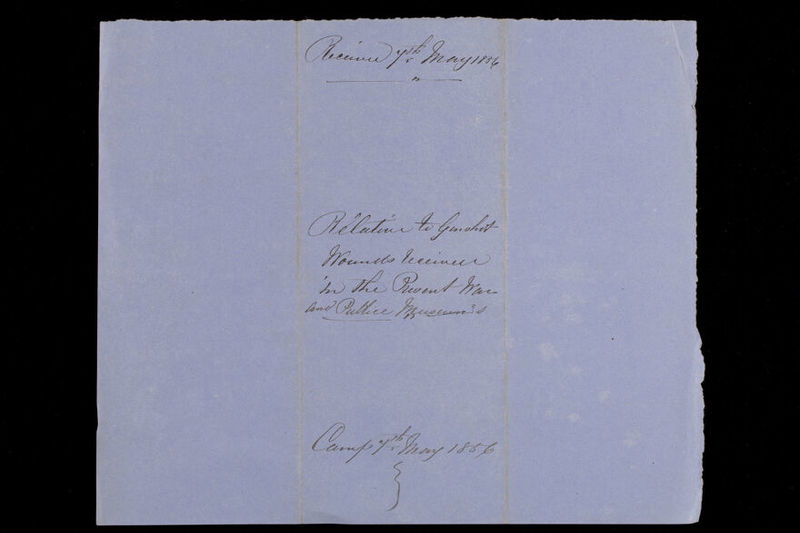 Received 7th May 1856
Relative to Gunshot
Wounds received
in the Present War
and Public Museums
Camp 7th May 1856